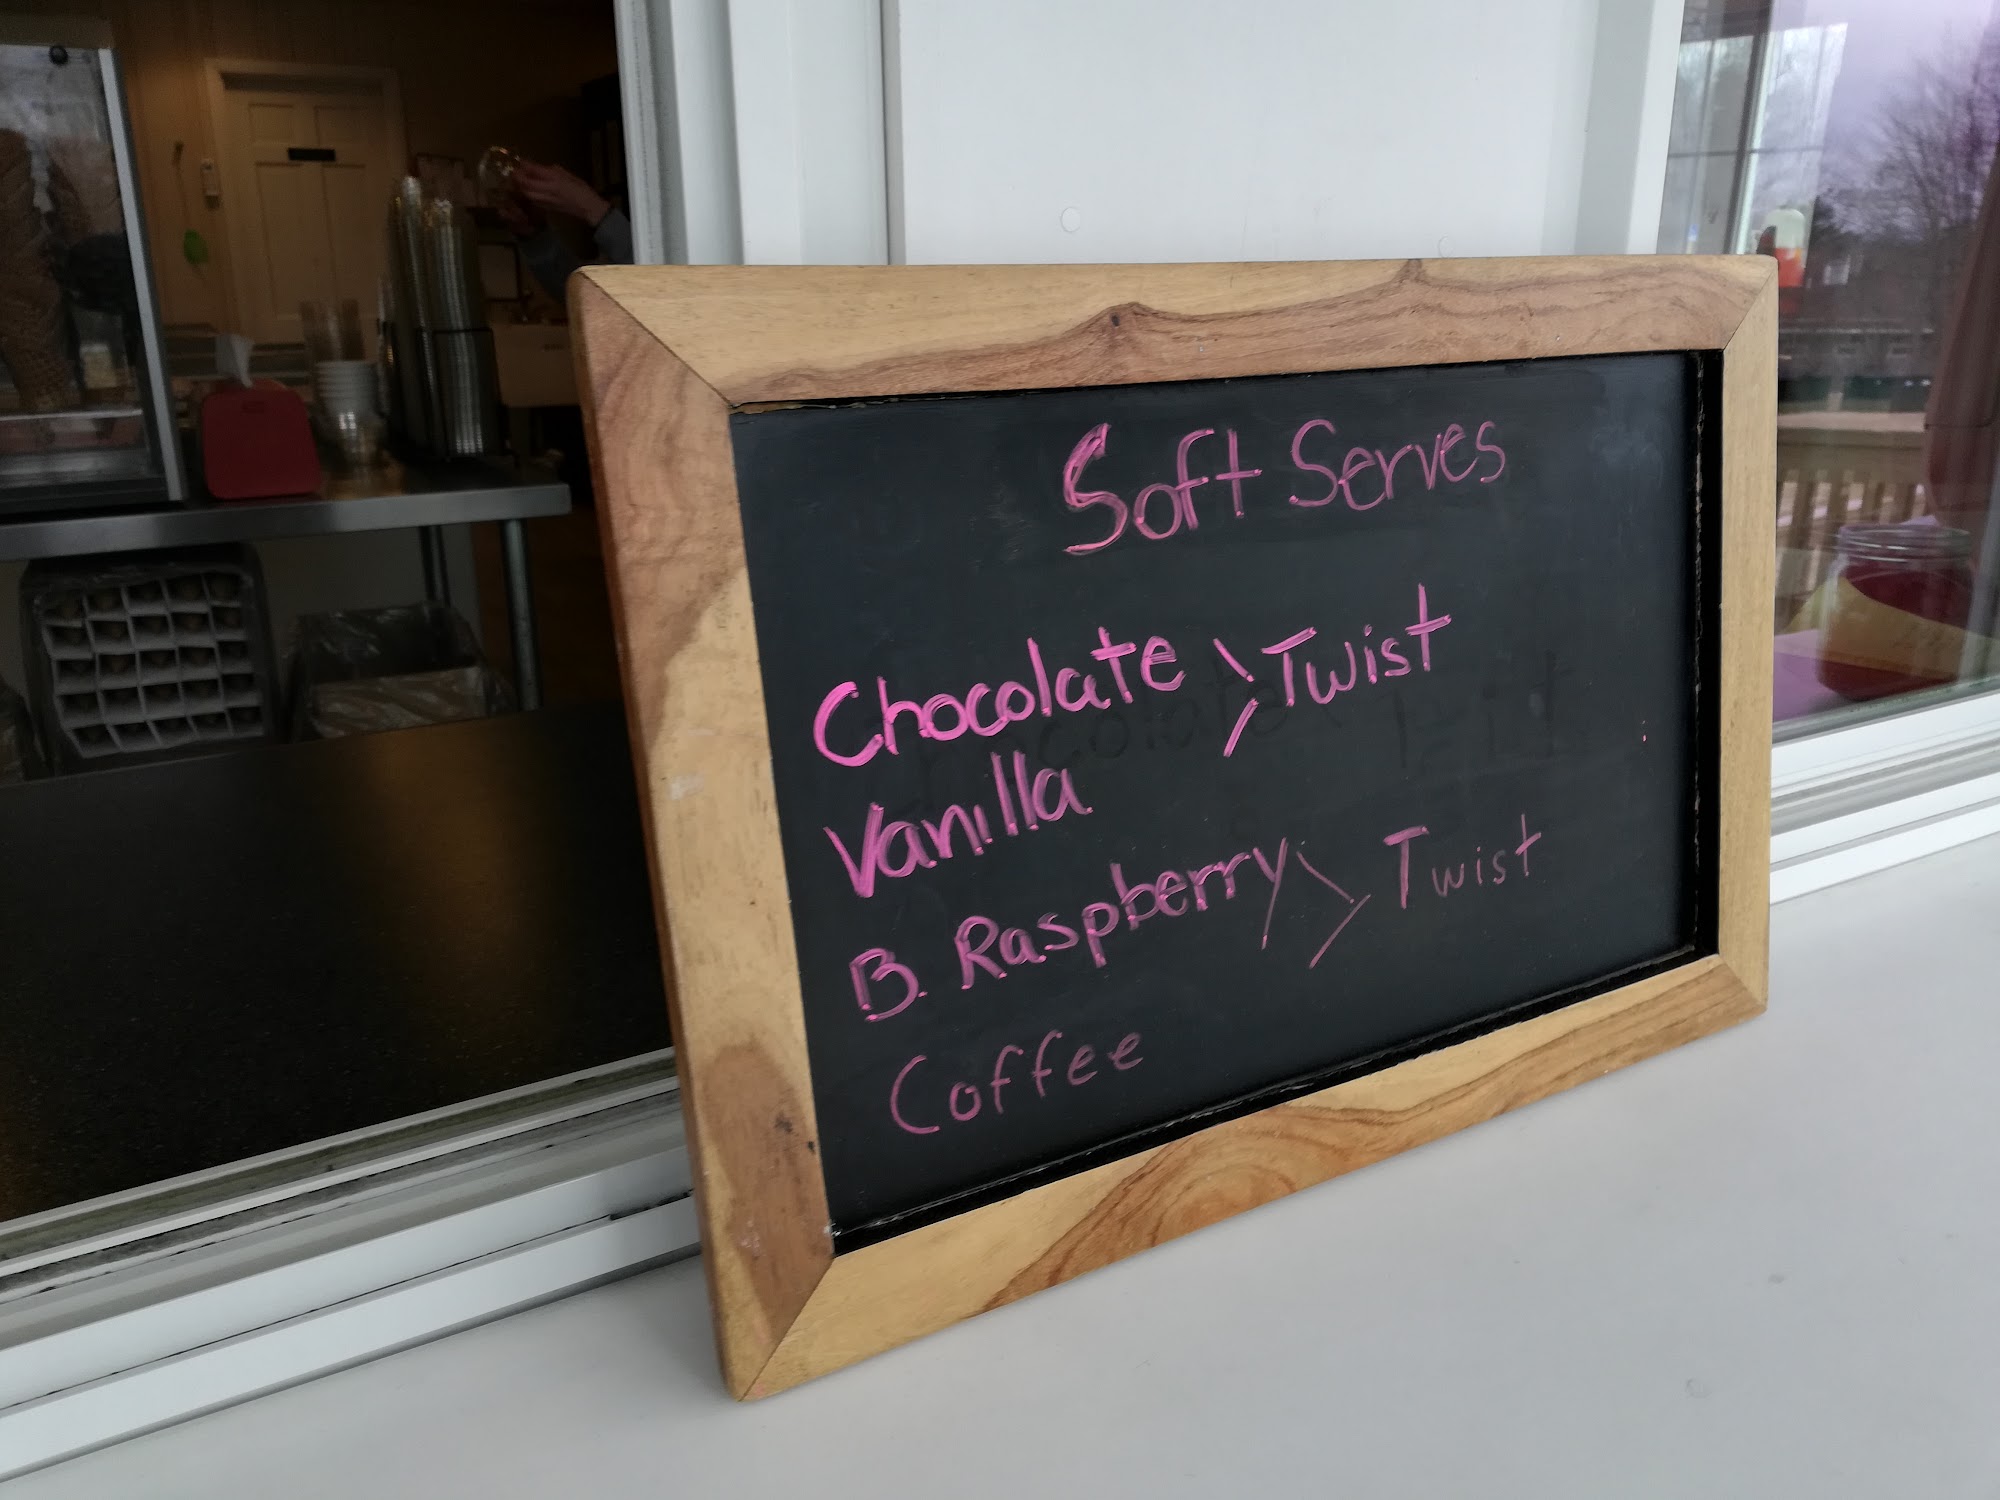 Soft Serves
Chocolate > Twist
Vanilla
B. Raspberry > Twist
Coffee